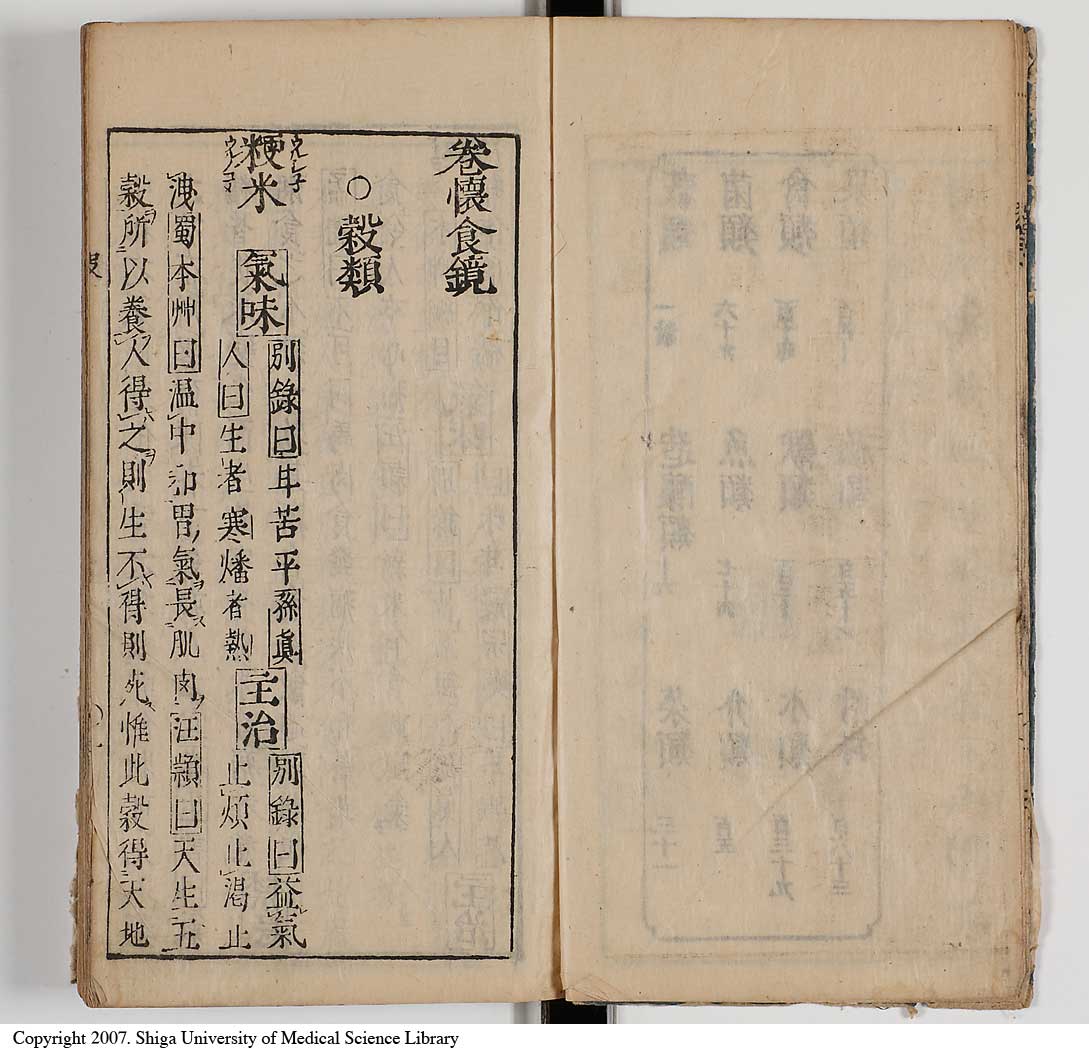 卷懷食鏡
○穀類
粳米 氣味 別錄曰甘苦平孫眞人曰生者寒燔者熱 主治 別錄曰益氣止煩止渴止
洩蜀本艸曰温中和胃氣長肌肉汪頴曰天生五
穀所以養人得之則生不得則死惟此穀得天地
Copyright 2007. Shiga University of Medical Science Library